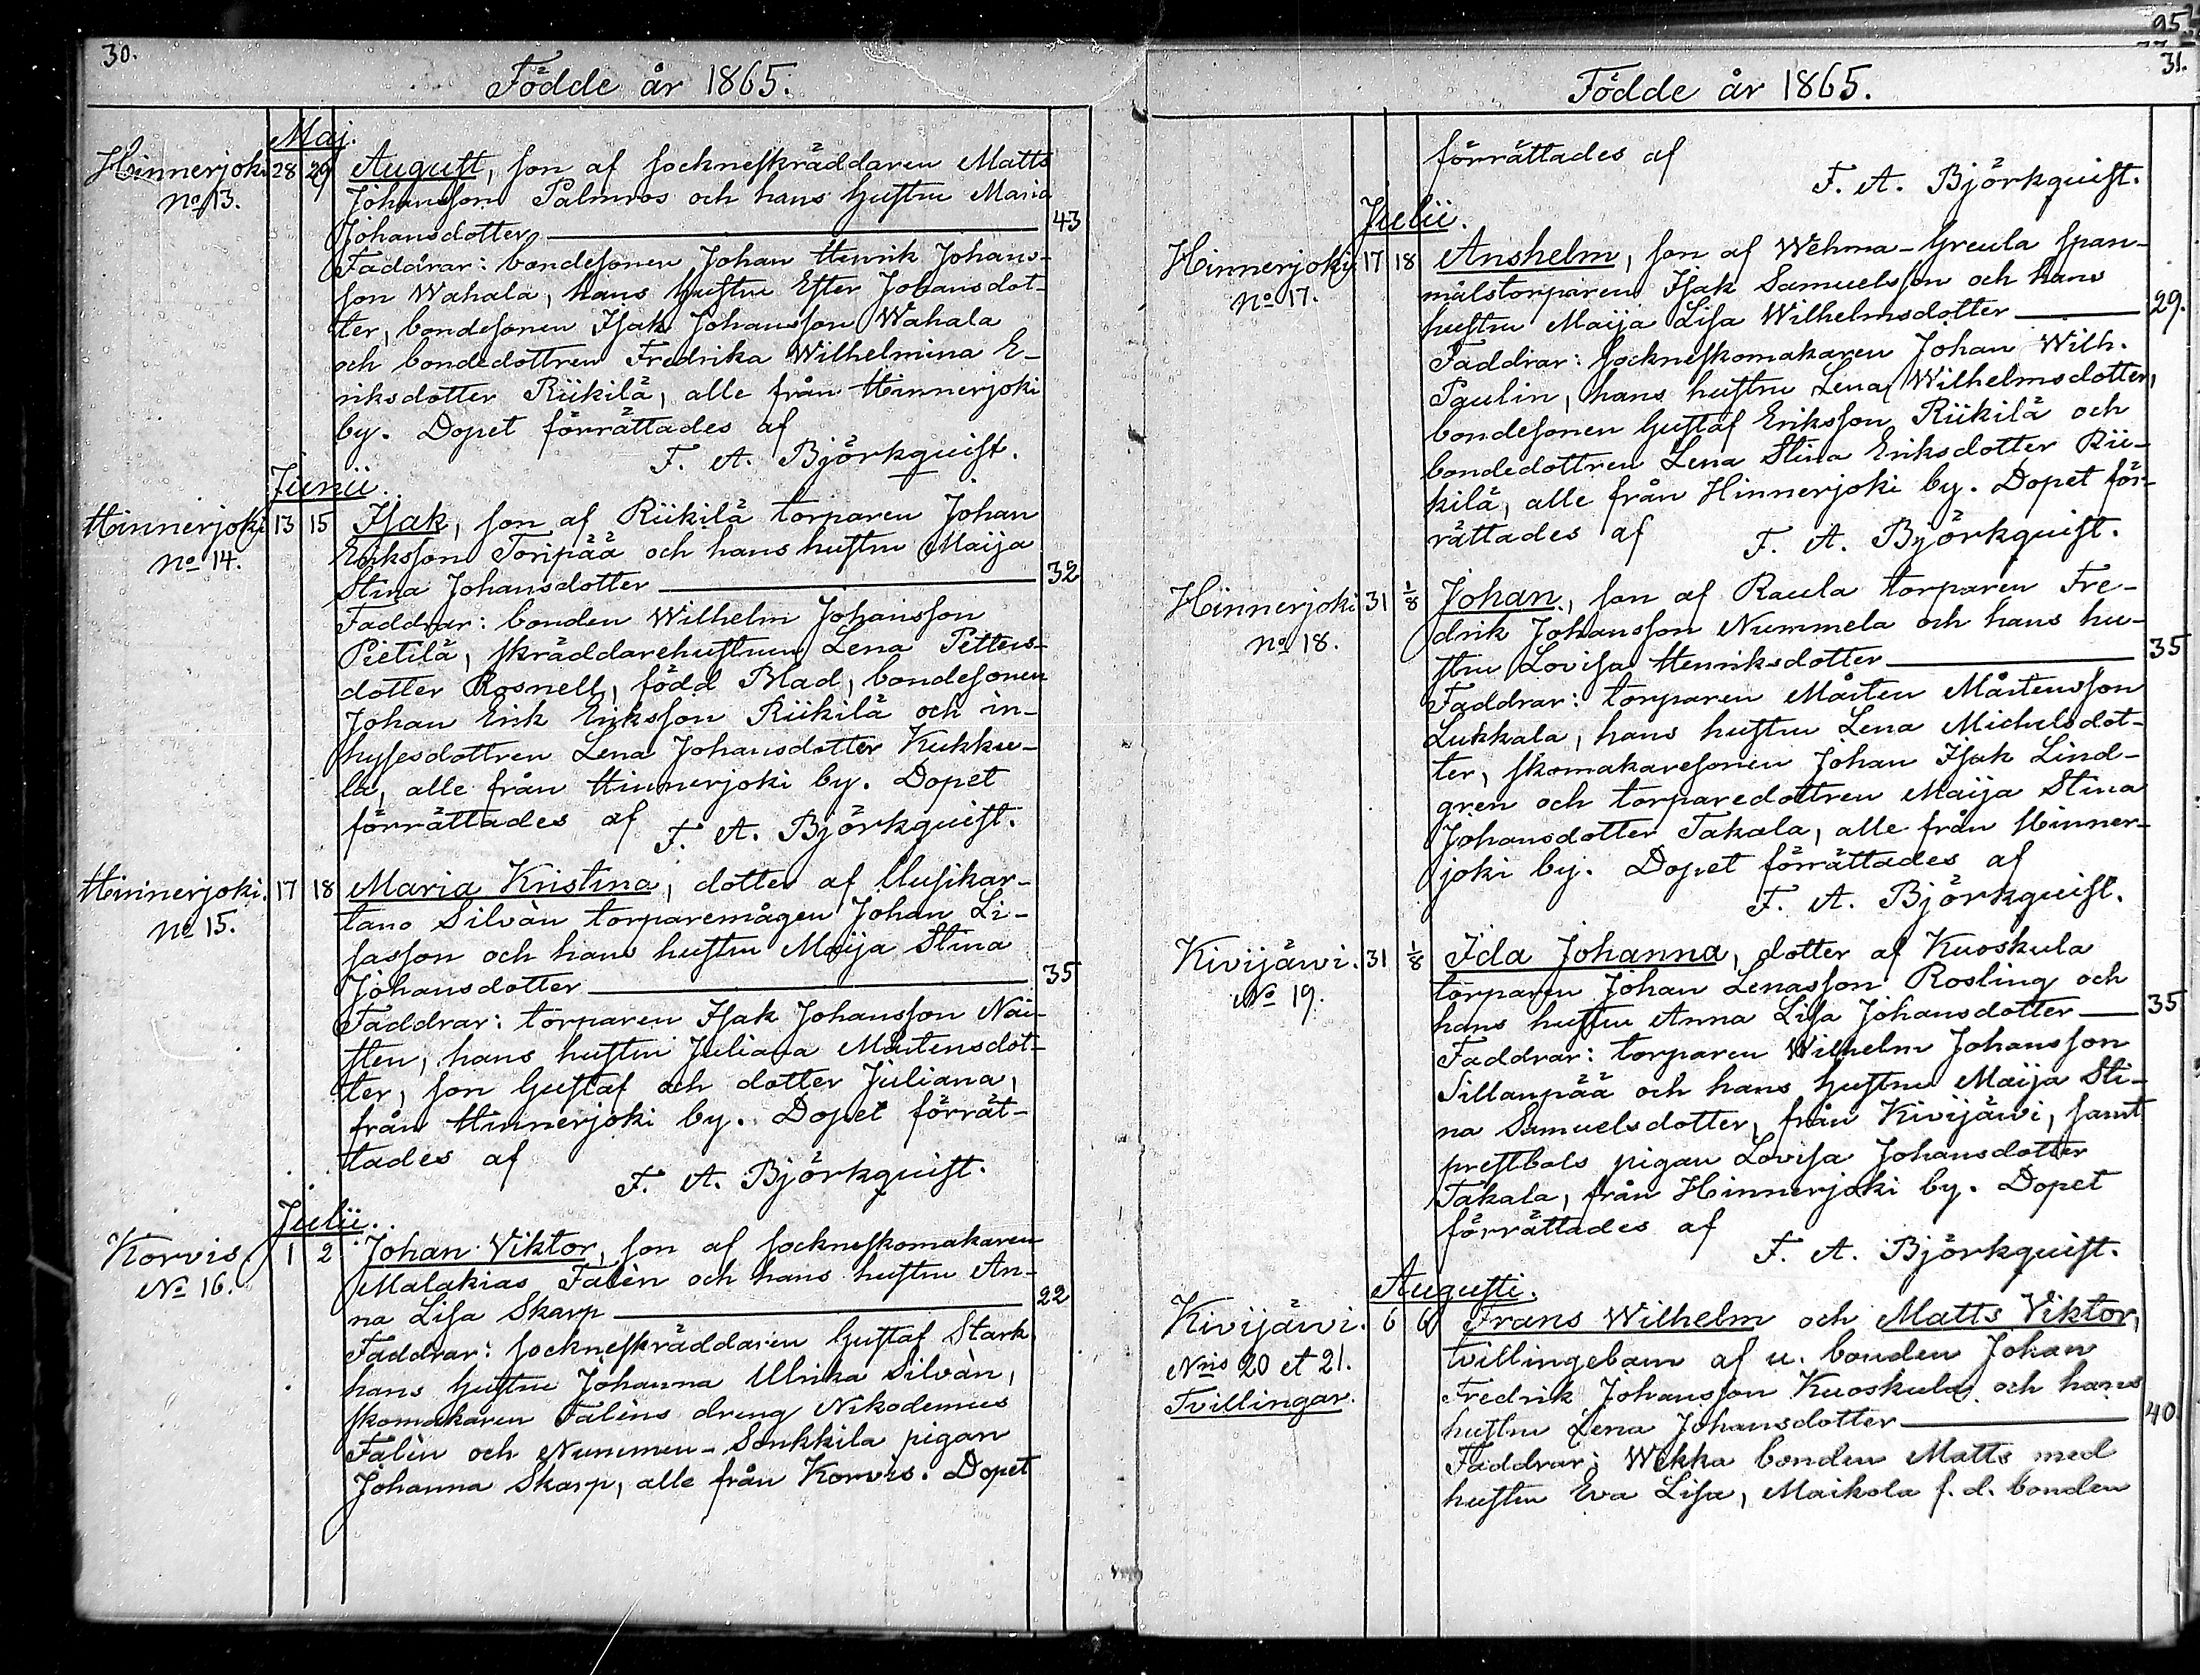 30.
Födde år 1865.
Maj.
Hinnerjoki 28 29 August, son af sockneskräddaren Matts
No 13. Johansson Palmros och hans hustru Maria
Johansdotter 43
Faddrar: bondesonen Johan Henrik Johans-
son Wahala, hans hustru Ester Johansdot-
ter, bondesonen Isak Johansson Wahala
och bondedottren Fredrika Wilhelmina E-
riksdotter Riikilä, alle från Hinnerjoki
by. Dopet förrättades af
F. A. Björkquist.
Junii.
Hinnerjoki 13 15 Isak, son af Riikilä torparen Johan
No 14. Eriksson Toripää och hans hustru Maija
Stina Johansdotter 32
Faddrar: bonden Wilhelm Johansson
Pietilä, skräddarehustrun Lena Petters-
dotter Rosnell, född Blad, bondesonen
Johan Erik Eriksson Riikilä och in-
hysesdottren Lena Johansdotter Kukku-
la, alle från Hinnerjoki by. Dopet
förrättades af F. A. Björkquist.
Hinnerjoki. 17 18 Maria Kristina, dotter af Uusikar-
No 15. tano Silvàn torparemågen Johan Li-
sasson och hans hustru Maija Stina
Johansdotter 35
Faddrar: torparen Isak Johansson Nai-
sten, hans hustru Juliana Mårtensdot-
ter, son Gustaf och dotter Juliana,
från Hinnerjoki by. Dopet förrät-
tades af
F. A. Björkquist.
Julii.
Korvis 1 2 Johan Viktor, son af sockneskomakaren
No 16. Malakias Falèn och hans hustru An-
na Lisa Skarp 22
Faddrar: sockneskräddaren Gustaf Stark,
hans hustru Johanna Ulrika Silvàn,
skomakaren Falèns dreng Nikodemus
Falèn och Nummen-Sonkkila pigan
Johanna Skarp, alle från Korvis. Dopet
95
31.
Födde år 1865.
förrättades af
F. A. Björkquist.
Julii.
Hinnerjoki 17 18 Anshelm, son af Wehma-Greula span-
No 17. målstorparen Isak Samuelsson och hans
hustru Maija Lisa Wilhelmsdotter 29.
Faddrar: sockneskomakaren Johan Wilh.
Paulin, hans hustru Lena Wilhelmsdotter,
bondesonen Gustaf Eriksson Riikilä och
bondedottren Lena Stina Eriksdotter Rii-
kilä, alle från Hinnerjoki by. Dopet för-
rättades af F. A. Björkquist.
Hinnerjoki 31 1/8 Johan, son af Raula torparen Fre-
No 18. drik Johansson Nummela och hans hu-
stru Lovisa Henriksdotter 35
Faddrar: torparen Mårten Mårtensson
Lukkala, hans hustru Lena Michelsdot-
ter, skomakaresonen Johan Isak Lind-
gren och torparedottren Maija Stina
Johansdotter Takala, alle från Hinner-
joki by. Dopet förrättades af
F. A. Björkquist.
Kivijäwi. 31 1/8 Ida Johanna, dotter af Kuoskula
No 19. torparen Johan Lenasson Rosling och
hans hustru Anna Lisa Johansdotter 35
Faddrar: torparen Wilhelm Johansson
Sillanpää och hans hustru Maija Sti-
na Samuelsdotter, från Kivijäwi, samt
prestbols pigan Lovisa Johansdotter
Takala, från Hinnerjoki by. Dopet
förrättades af
F. A. Björkquist.
Augusti.
Kivijäwi. 6 6 Frans Wilhelm och Matts Viktor,
Nris 20 et 21. tvillingebarn af u. bonden Johan
Tvillingar. Fredrik Johansson Kuoskula och hans
hustru Lena Johansdotter 40
Faddrar: Wekka bonden Matts med
hustru Eva Lisa, Maikola f. d. bonden